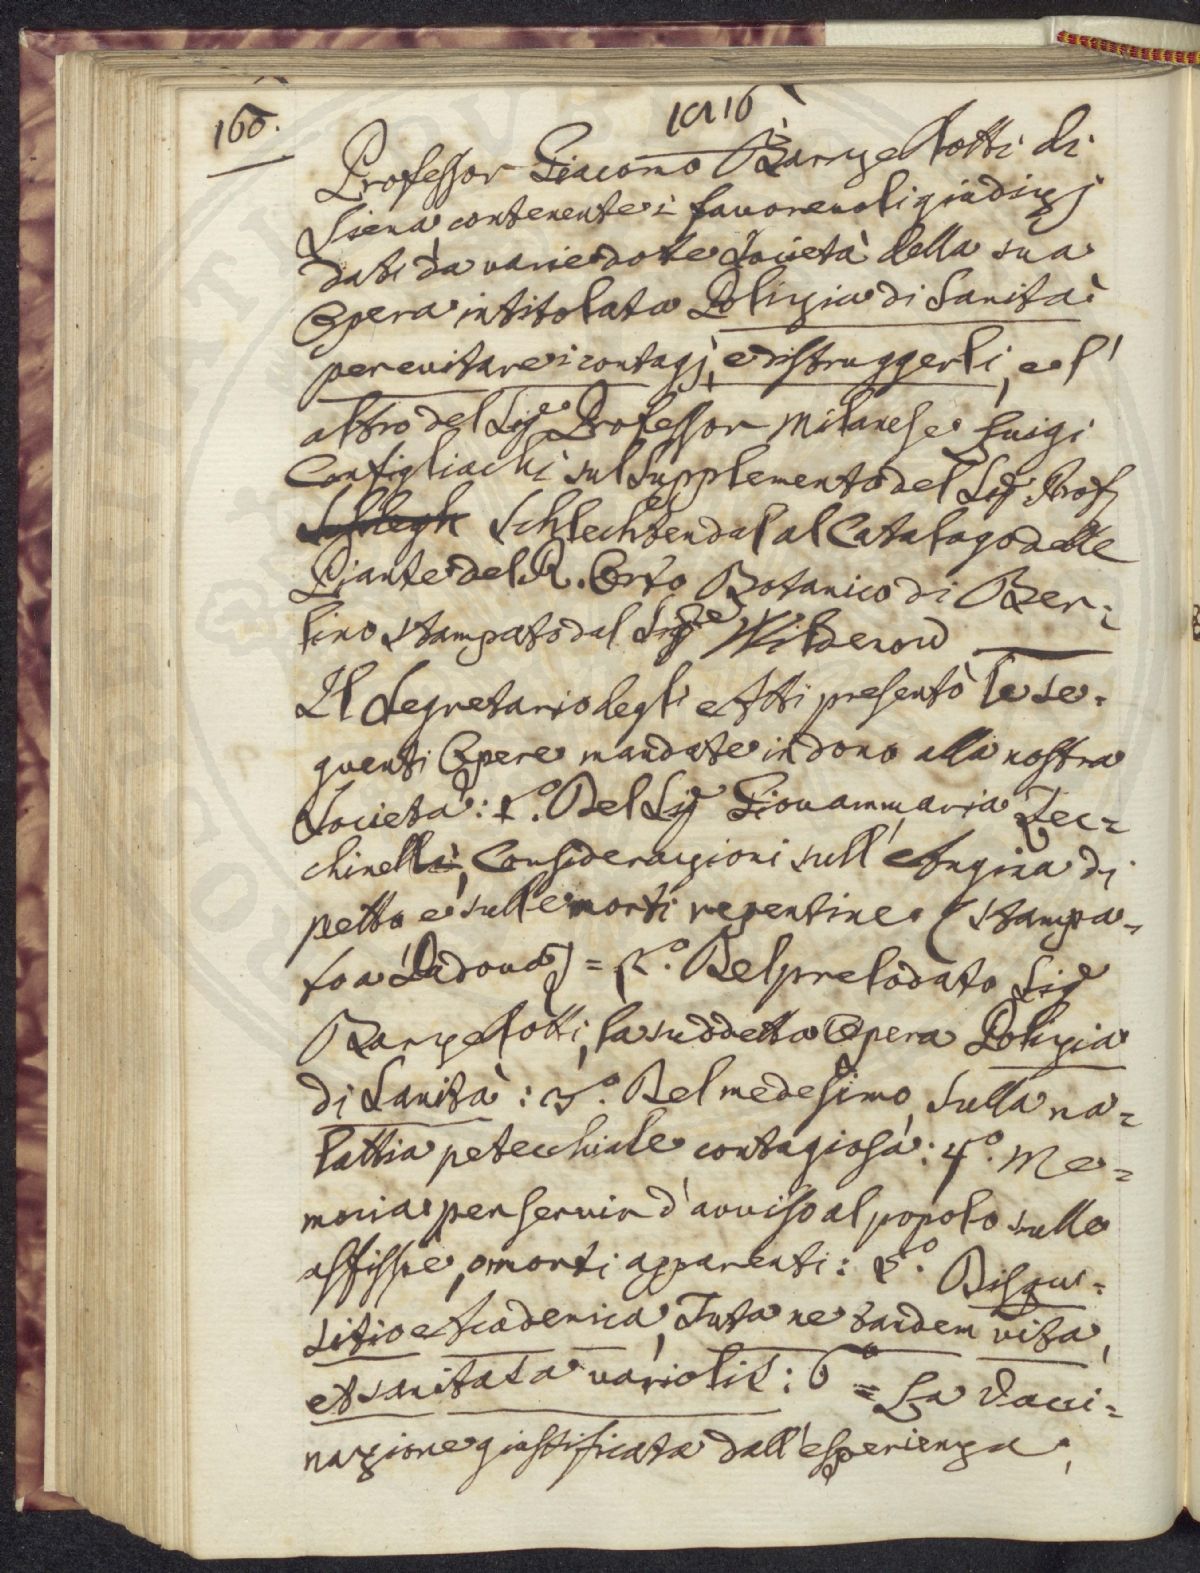 160.
1816
Professor Giacomo Barzellotti di
Siena contenente i favorevoli giudizj
dati da varie dotte Società della sua
Opera intitolata Polizia di Sanità
per evitare i contagj, e distruggerli, e l'
altro del Sig.e Professor Milanese Luigi
Configliachi sul Supplemento del Sig.e Prof.
Schlechtendal al Catalogo delle
Piante del R. Orto Botanico di Ber=
lino stampato dal Sig.e Wildenow
Il Segretario degli Atti presentò le se=
guenti Opere mandate in dono alla nostra
Società: 1.° Del Sig.e Giovanmaria Zec=
chinelli, Considerazioni sull'Angina di
petto e sulle morti repentine (stampa=
to a Padova) = 2.° Del prelodato Sig.e
Barzellotti, la suddetta Opera Polizia
di Sanità: 3.° Del medesimo, Sulla ma=
lattia petecchiale contagiosa: 4.° Me=
moria per servir d'avviso al popolo sulle
asfissie, o morti apparenti: 5.° Disqui=
sitio Academica, Tuta ne tandem vita,
et sanitas a variolis: 6.° = La Vacci=
nazione giustificata dall'esperienza,